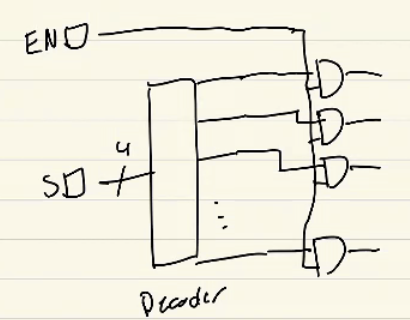 EN
4
S
Decoder